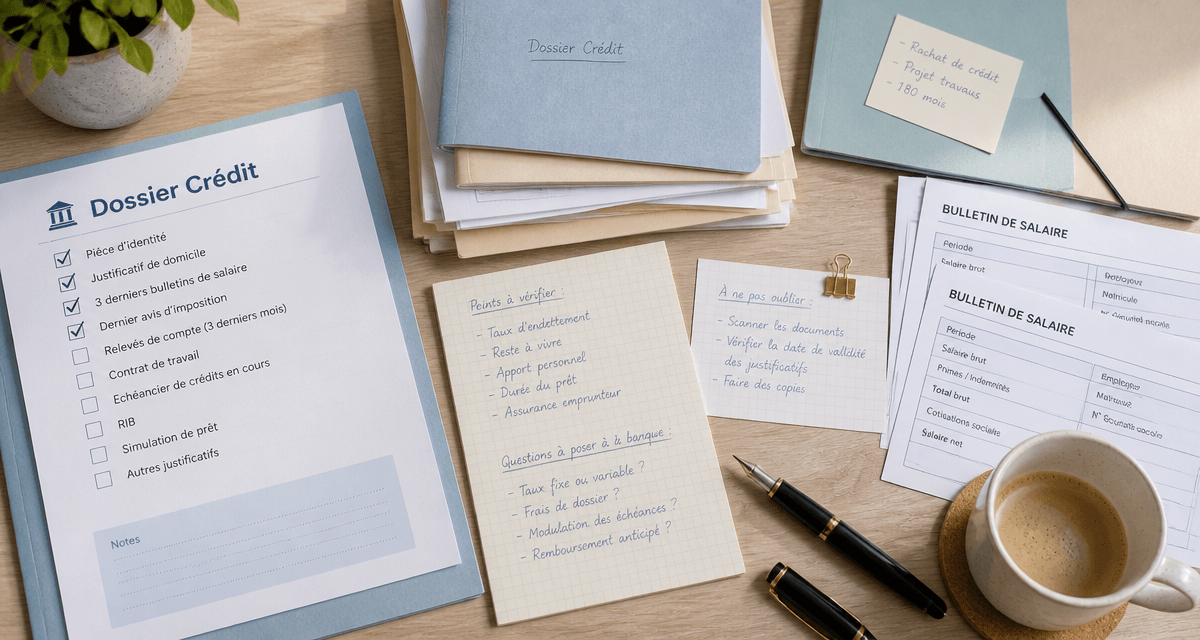 Dossier Crédit
Pièce d'identité
Justificatif de domicile
3 derniers bulletins de salaire
Dernier avis d'imposition
Relevés de compte (3 derniers mois)
Contrat de travail
Echéancier de crédits en cours
RIB
Simulation de prêt
Autres justificatifs
Notes
Dossier Crédit
- Rachat de crédit
- Projet travaux
- 180 mois
Peints à vérifier :
- Taux d'endettement
- Reste à vivre
- Apport personnel
- Durée du prêt
- Assurance emprunteur
Questions à poser à la banque :
- Taux fixe ou variable ?
- Frais de dossier ?
- Modulation des échéances ?
- Remboursement anticipé ?
À ne pas oublier :
- Scanner les documents
- Vérifier la date de validité
des justificatifs
- Faire des copies
BULLETIN DE SALAIRE
Periode
Salaire brut
BULLETIN DE SALAIRE
Periode
Salaire brut
Primes / Indemnités
Total brut
Cotisations sociales
Salaire net